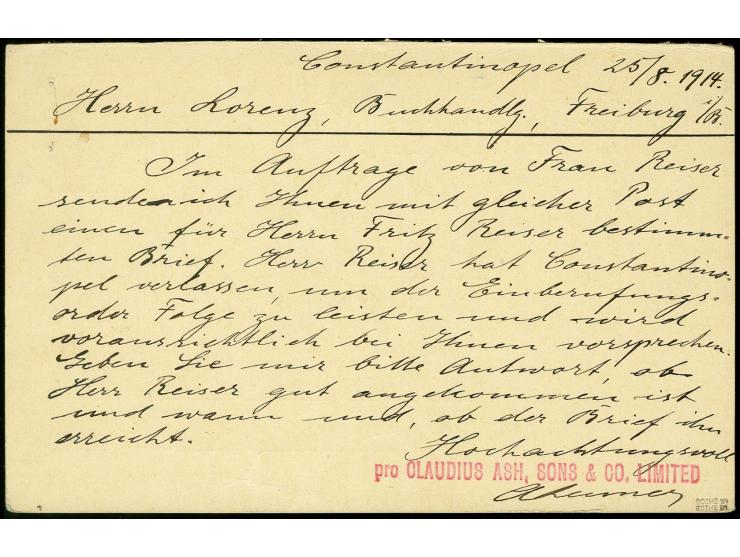 Constantinopel 25/8. 1914.
Herrn Lorenz, Buchhandlg., Freiburg i/Br.
Im Auftrage von Frau Reiser
sende ich Ihnen mit gleicher Post
einen für Herrn Fritz Reiser bestimm-
ten Brief. Herr Reiser hat Constantino-
pel verlassen, um der Einberufungs-
order Folge zu leisten und wird
voraussichtlich bei Ihnen vorsprechen.
Geben Sie mir bitte Antwort, ob
Herr Reiser gut angekommen ist
und wann und, ob der Brief ihn
erreicht.
Hochachtungsvoll
pro CLAUDIUS ASH, SONS & CO. LIMITED